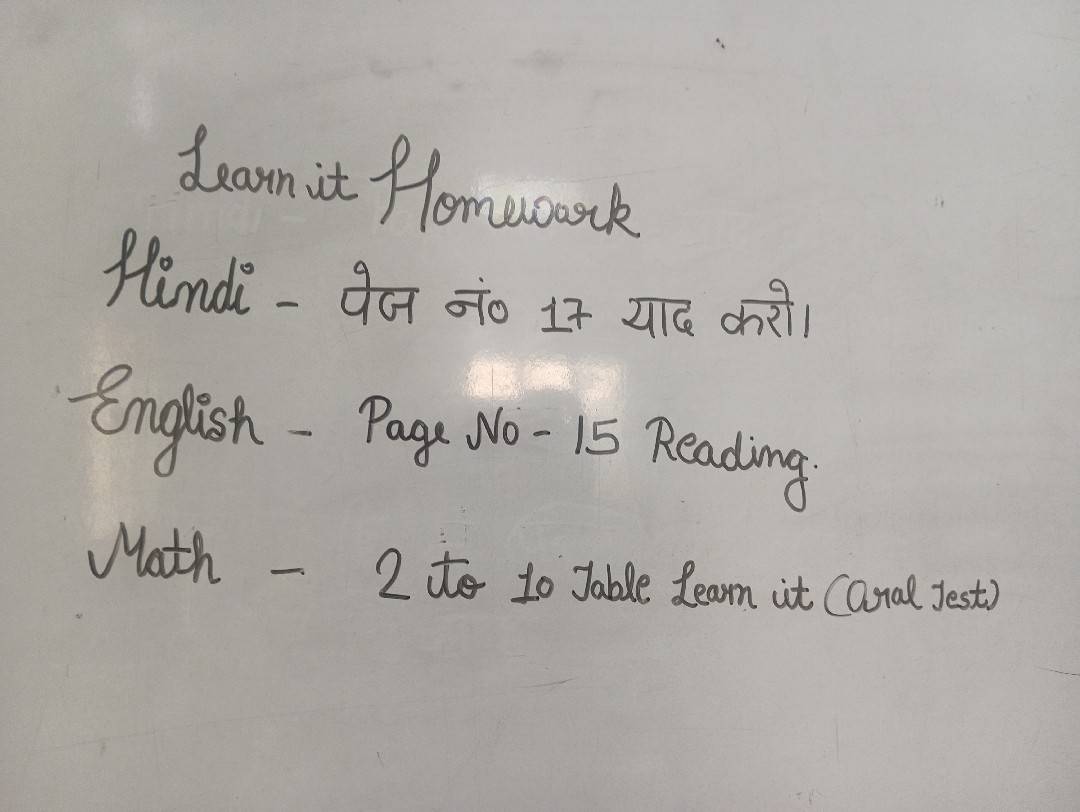 Learn it Homewark
Hindi - पेज नं० 17 याद करो।
English - Page No - 15 Reading.
Math - 2 to 10 Table Learn it (Oral Test)